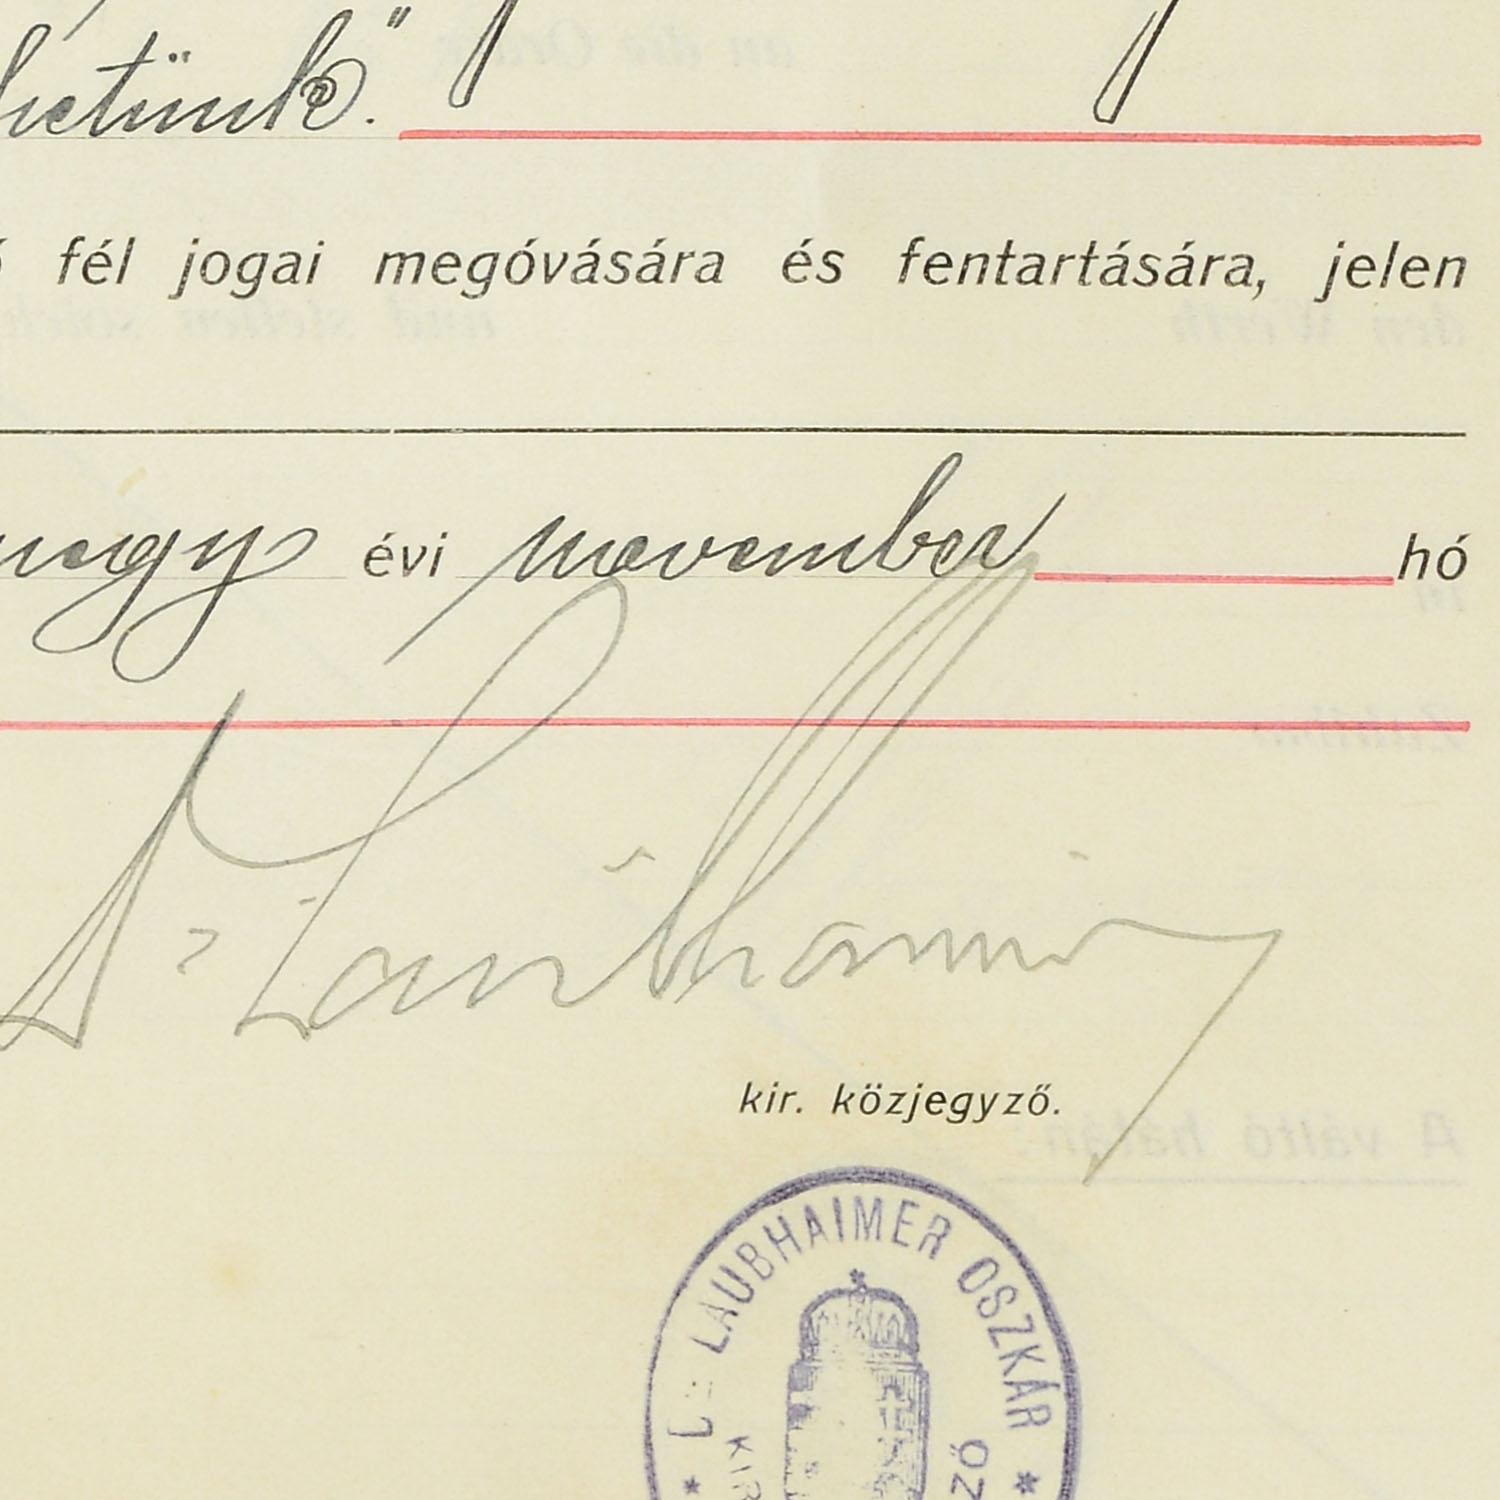 hetünk."
fél jogai megóvására és fentartására, jelen
négy évi november hó
Dr Laubhaimer
kir. közjegyző.
Dr LAUBHAIMER OSZKÁR
KIR